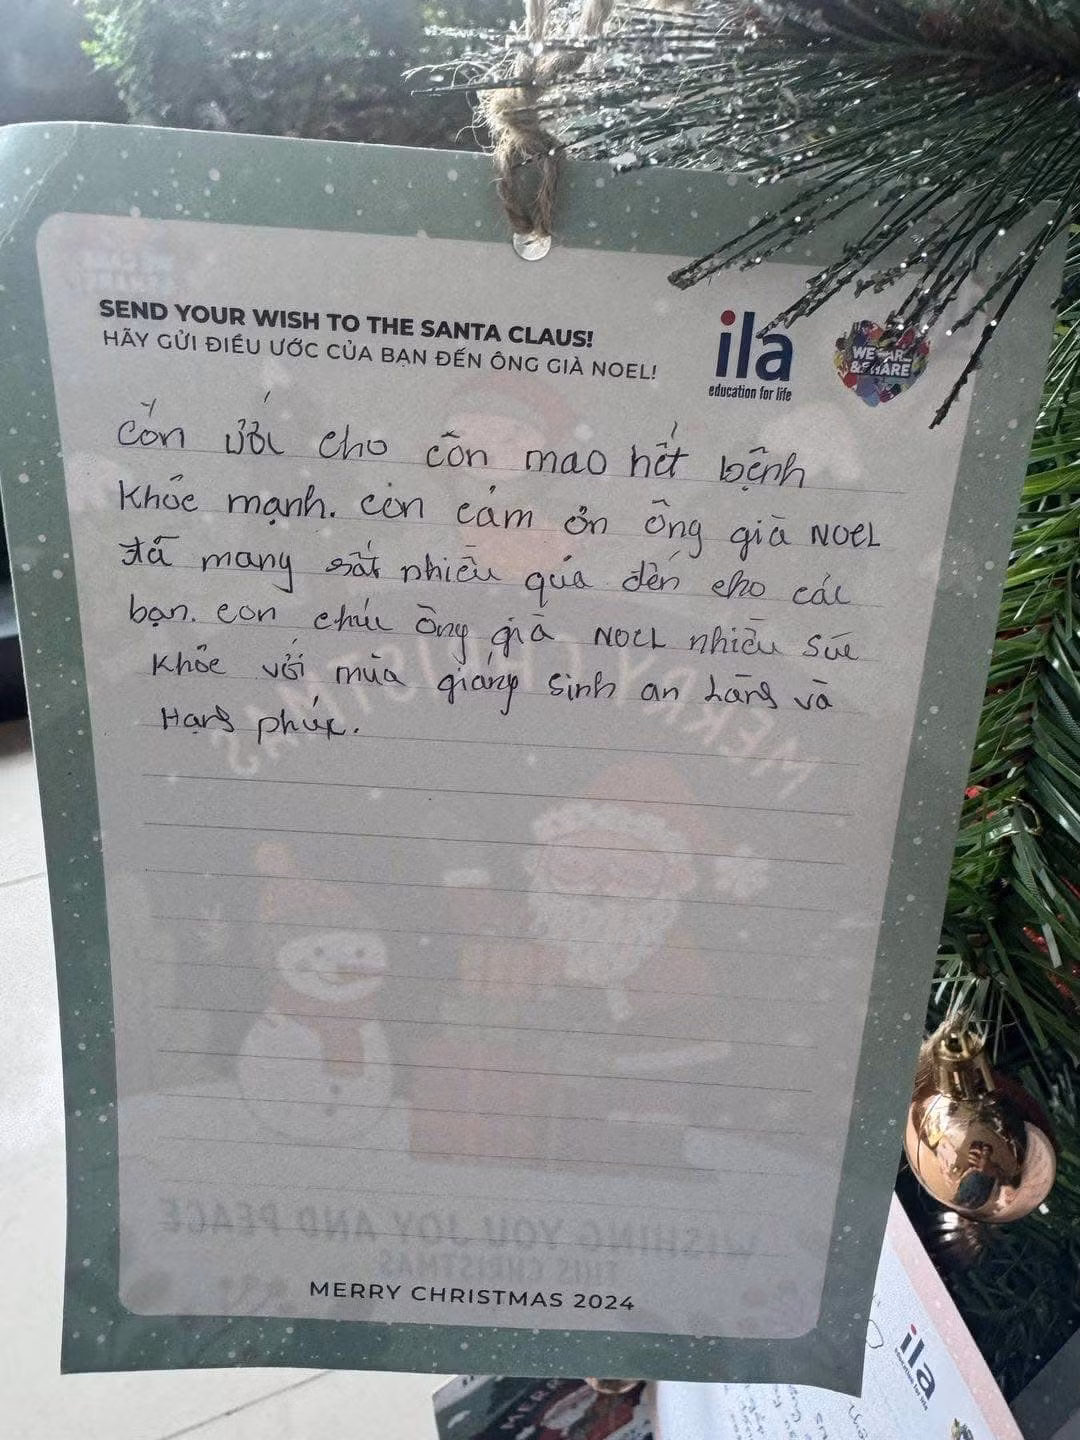 SEND YOUR WISH TO THE SANTA CLAUS!
HÃY GỬI ĐIỀU ƯỚC CỦA BẠN ĐẾN ÔNG GIÀ NOEL!
ila
education for life
WE
& SHARE
Cón ước cho côn mao hết bệnh
khỏe mạnh. con cảm ơn ông già NOEL
đã mang rất nhiều quà đến cho các
bạn. con chúc ông già NOEL nhiều sức
khỏe với mùa giáng sinh an Lãng và
Hạng phúc.
MERRY CHRISTMAS
WISHING YOU JOY AND PEACE
THIS CHRISTMAS
MERRY CHRISTMAS 2024
ila
education for life